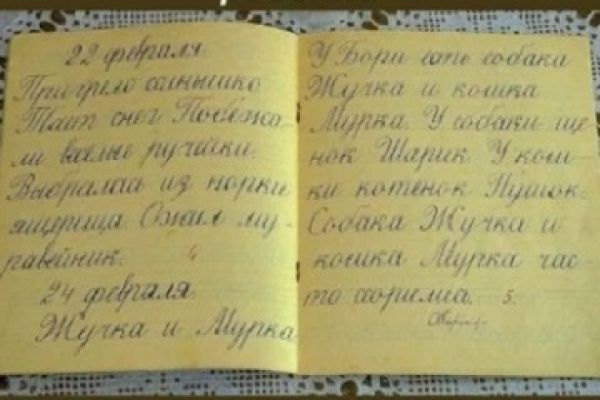 22 февраля.
Пригрело солнышко
Тает снег. Побежа-
ли весёлые ручейки.
Выбралась из норки
ящерица. Ожил му-
равейник. 4
24 февраля.
Жучка и Мурка
У Бори есть собака
Жучка и кошка
Мурка. У собаки ще
нок Шарик. У кош-
ки котёнок Пушок.
Собака Жучка и
кошка Мурка час-
то ссорились. 5.